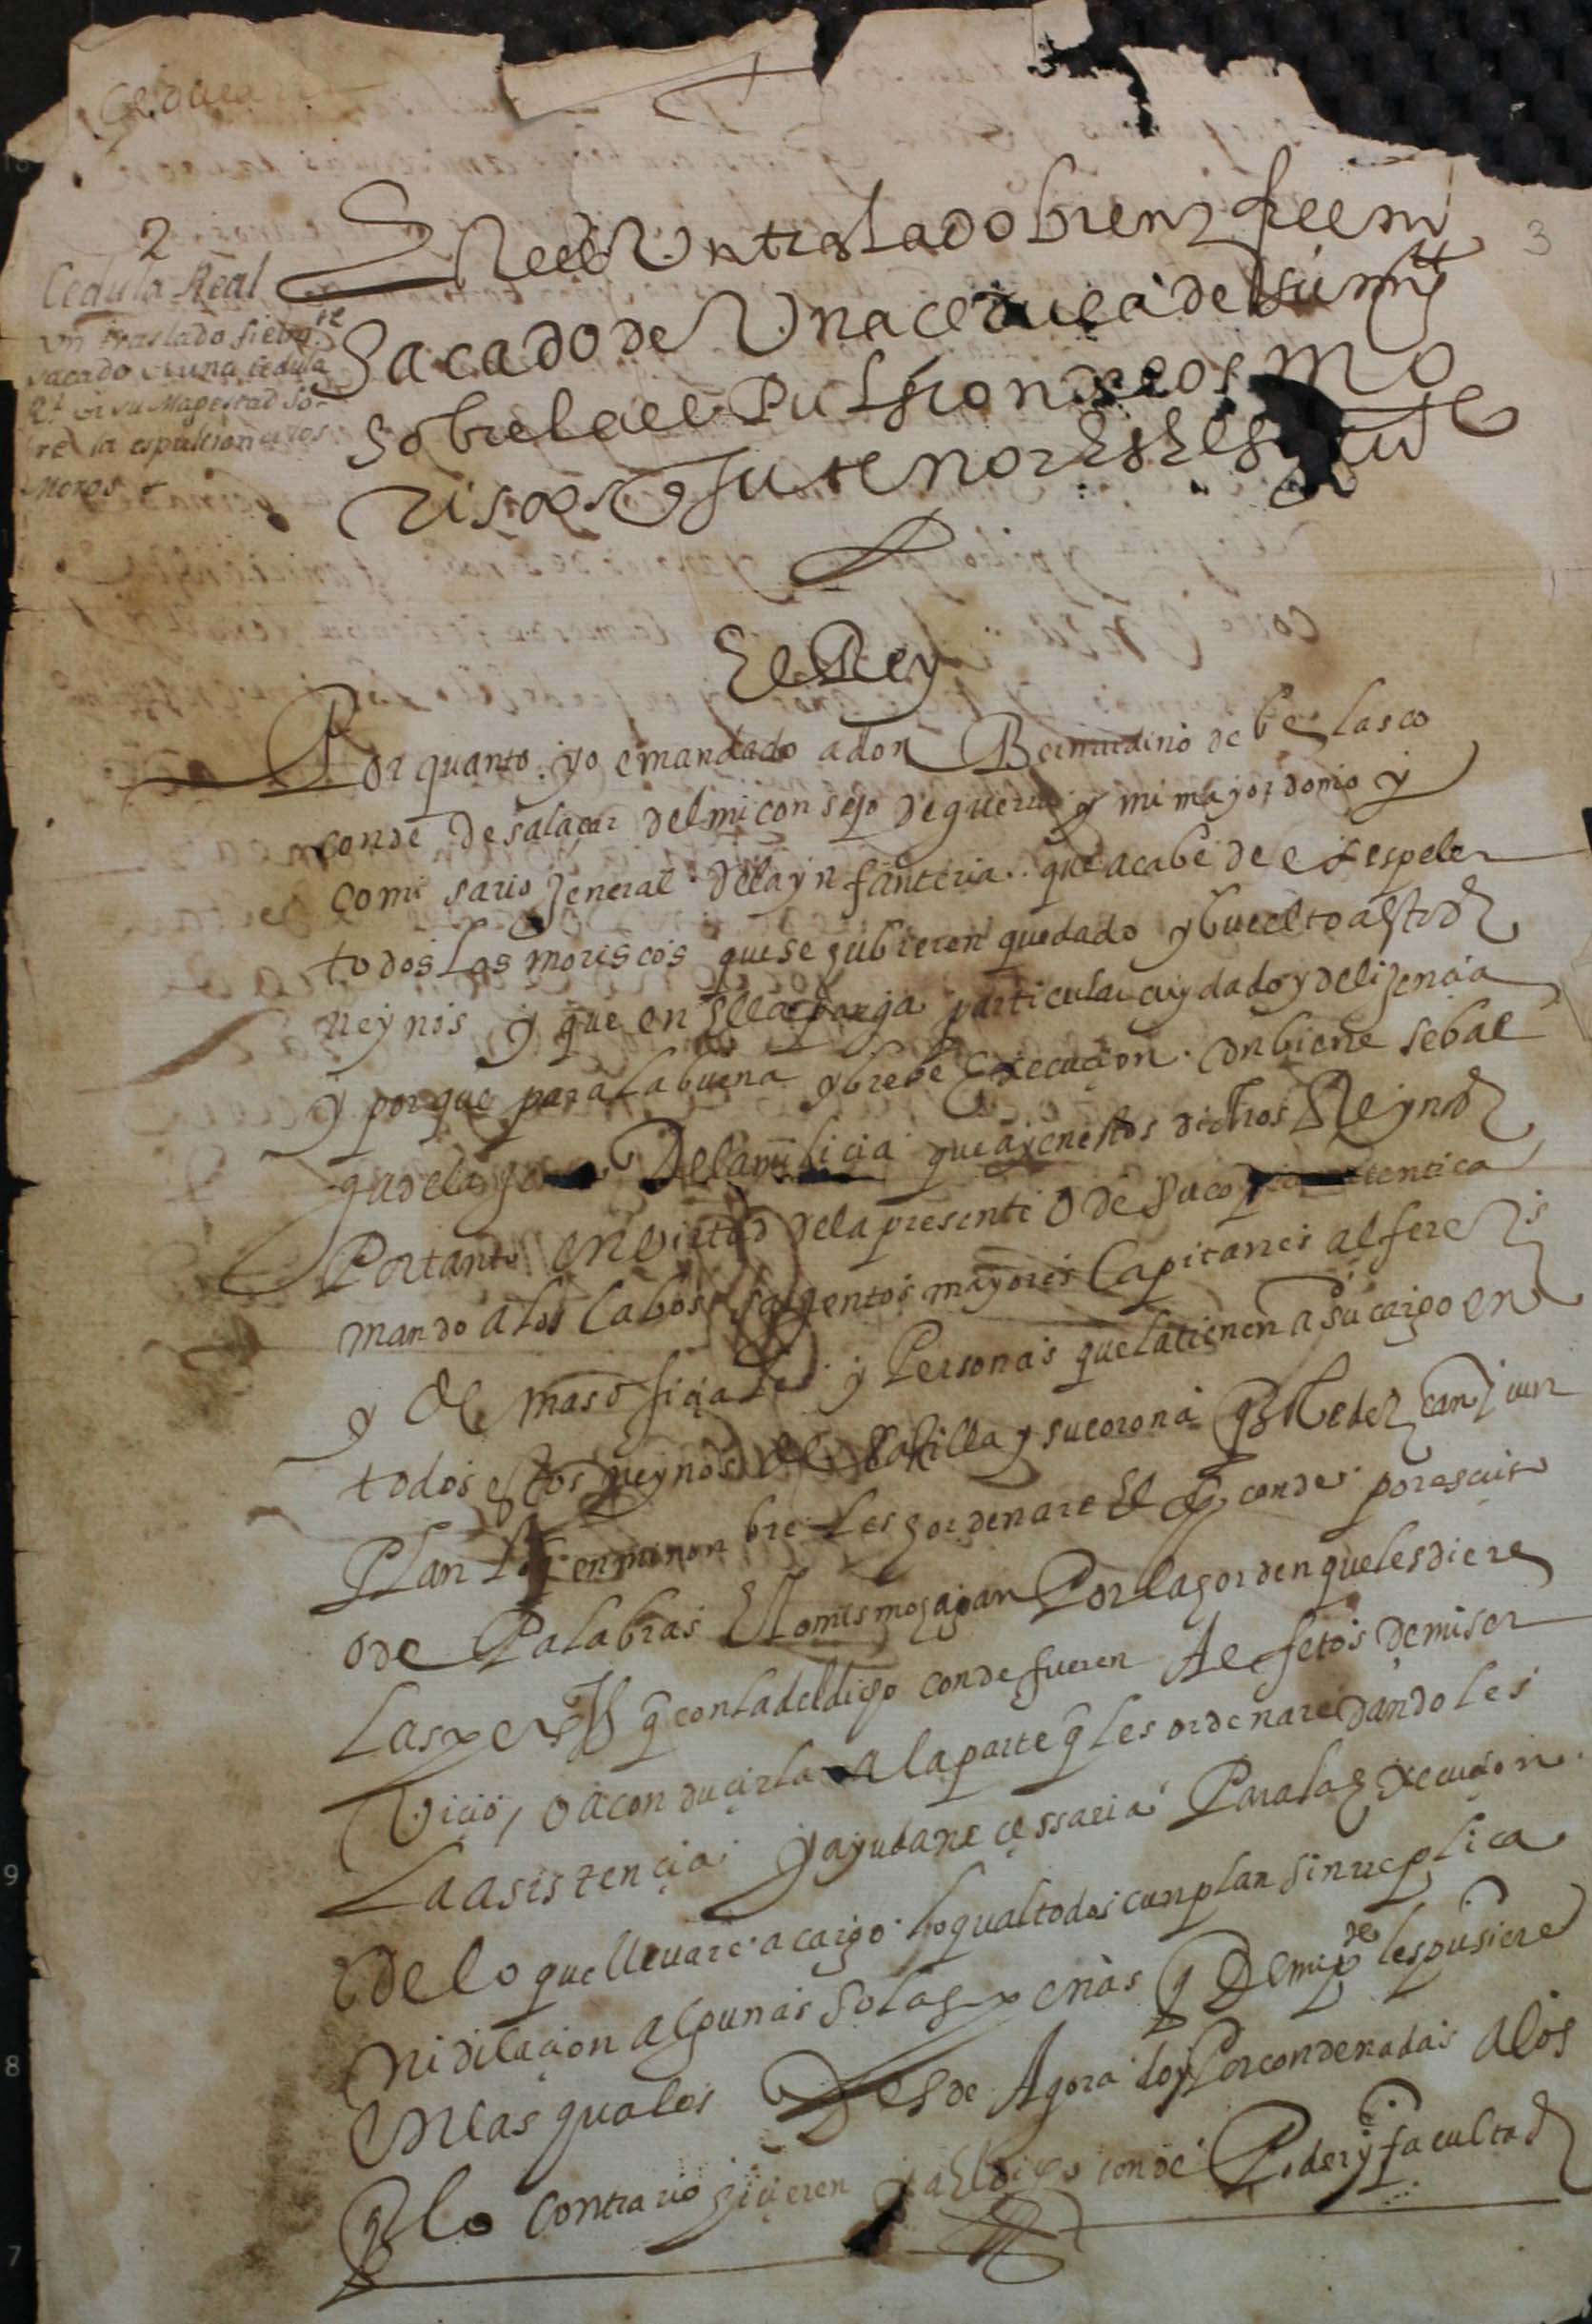 Cedula
2
Cedula Real
Un traslado fielm.te
sacado de una cedula
R.l de su Magestad so-
bre la espulsion de los
Moros
3
un traslado bien y fielm
Sacado de Una cedula de su mg.tt
sobre la espulsion de los mo
riscos que su tenor es el siguie
El Rey
Por quanto yo e mandado a don Bernardino de belasco
conde de salaçar del mi consejo de guerra y mi mayordomo y
comisario jeneral de la ynfanteria que acabe de espeler
todos Los moriscos que se hubieren quedado y buelto a estos
Reynos y que en ello ponga particular cuydado y delijencia
y porque para La buena y brebe Execucion conbiene se bal
ga de la De la milicia que ay en estos dichos Reynos
Portanto en Virtud de la presente o de su copia autentica
mando a los Cabos Sargentos mayores Capitanes alferes
y de mas oficiales y Personas que la tienen a su cargo en
todos estos Reynos de Castilla y su corona q obedezcan y cun
Plan Lo q en mi nonbre Les hordenare El dho conde por escrito
o de Palabras Y Lo mismo hagan Por la horden que les diere
Las pers q con la del dicho conde fueren A efetos de mi ser
Vicio, o a conducirla a la parte q Les ordenare dandoles
La asistencia y ayuda necessaria Para la Execucion
de lo que llevare a cargo Lo qual todos cunplan sin replica
Ni dilacion alguna so las penas q De mi p.de les pusiere
En las quales Desde Agora doy Por condenados a los
q lo Contrario hicieren y al dicho conde Poder y facultad